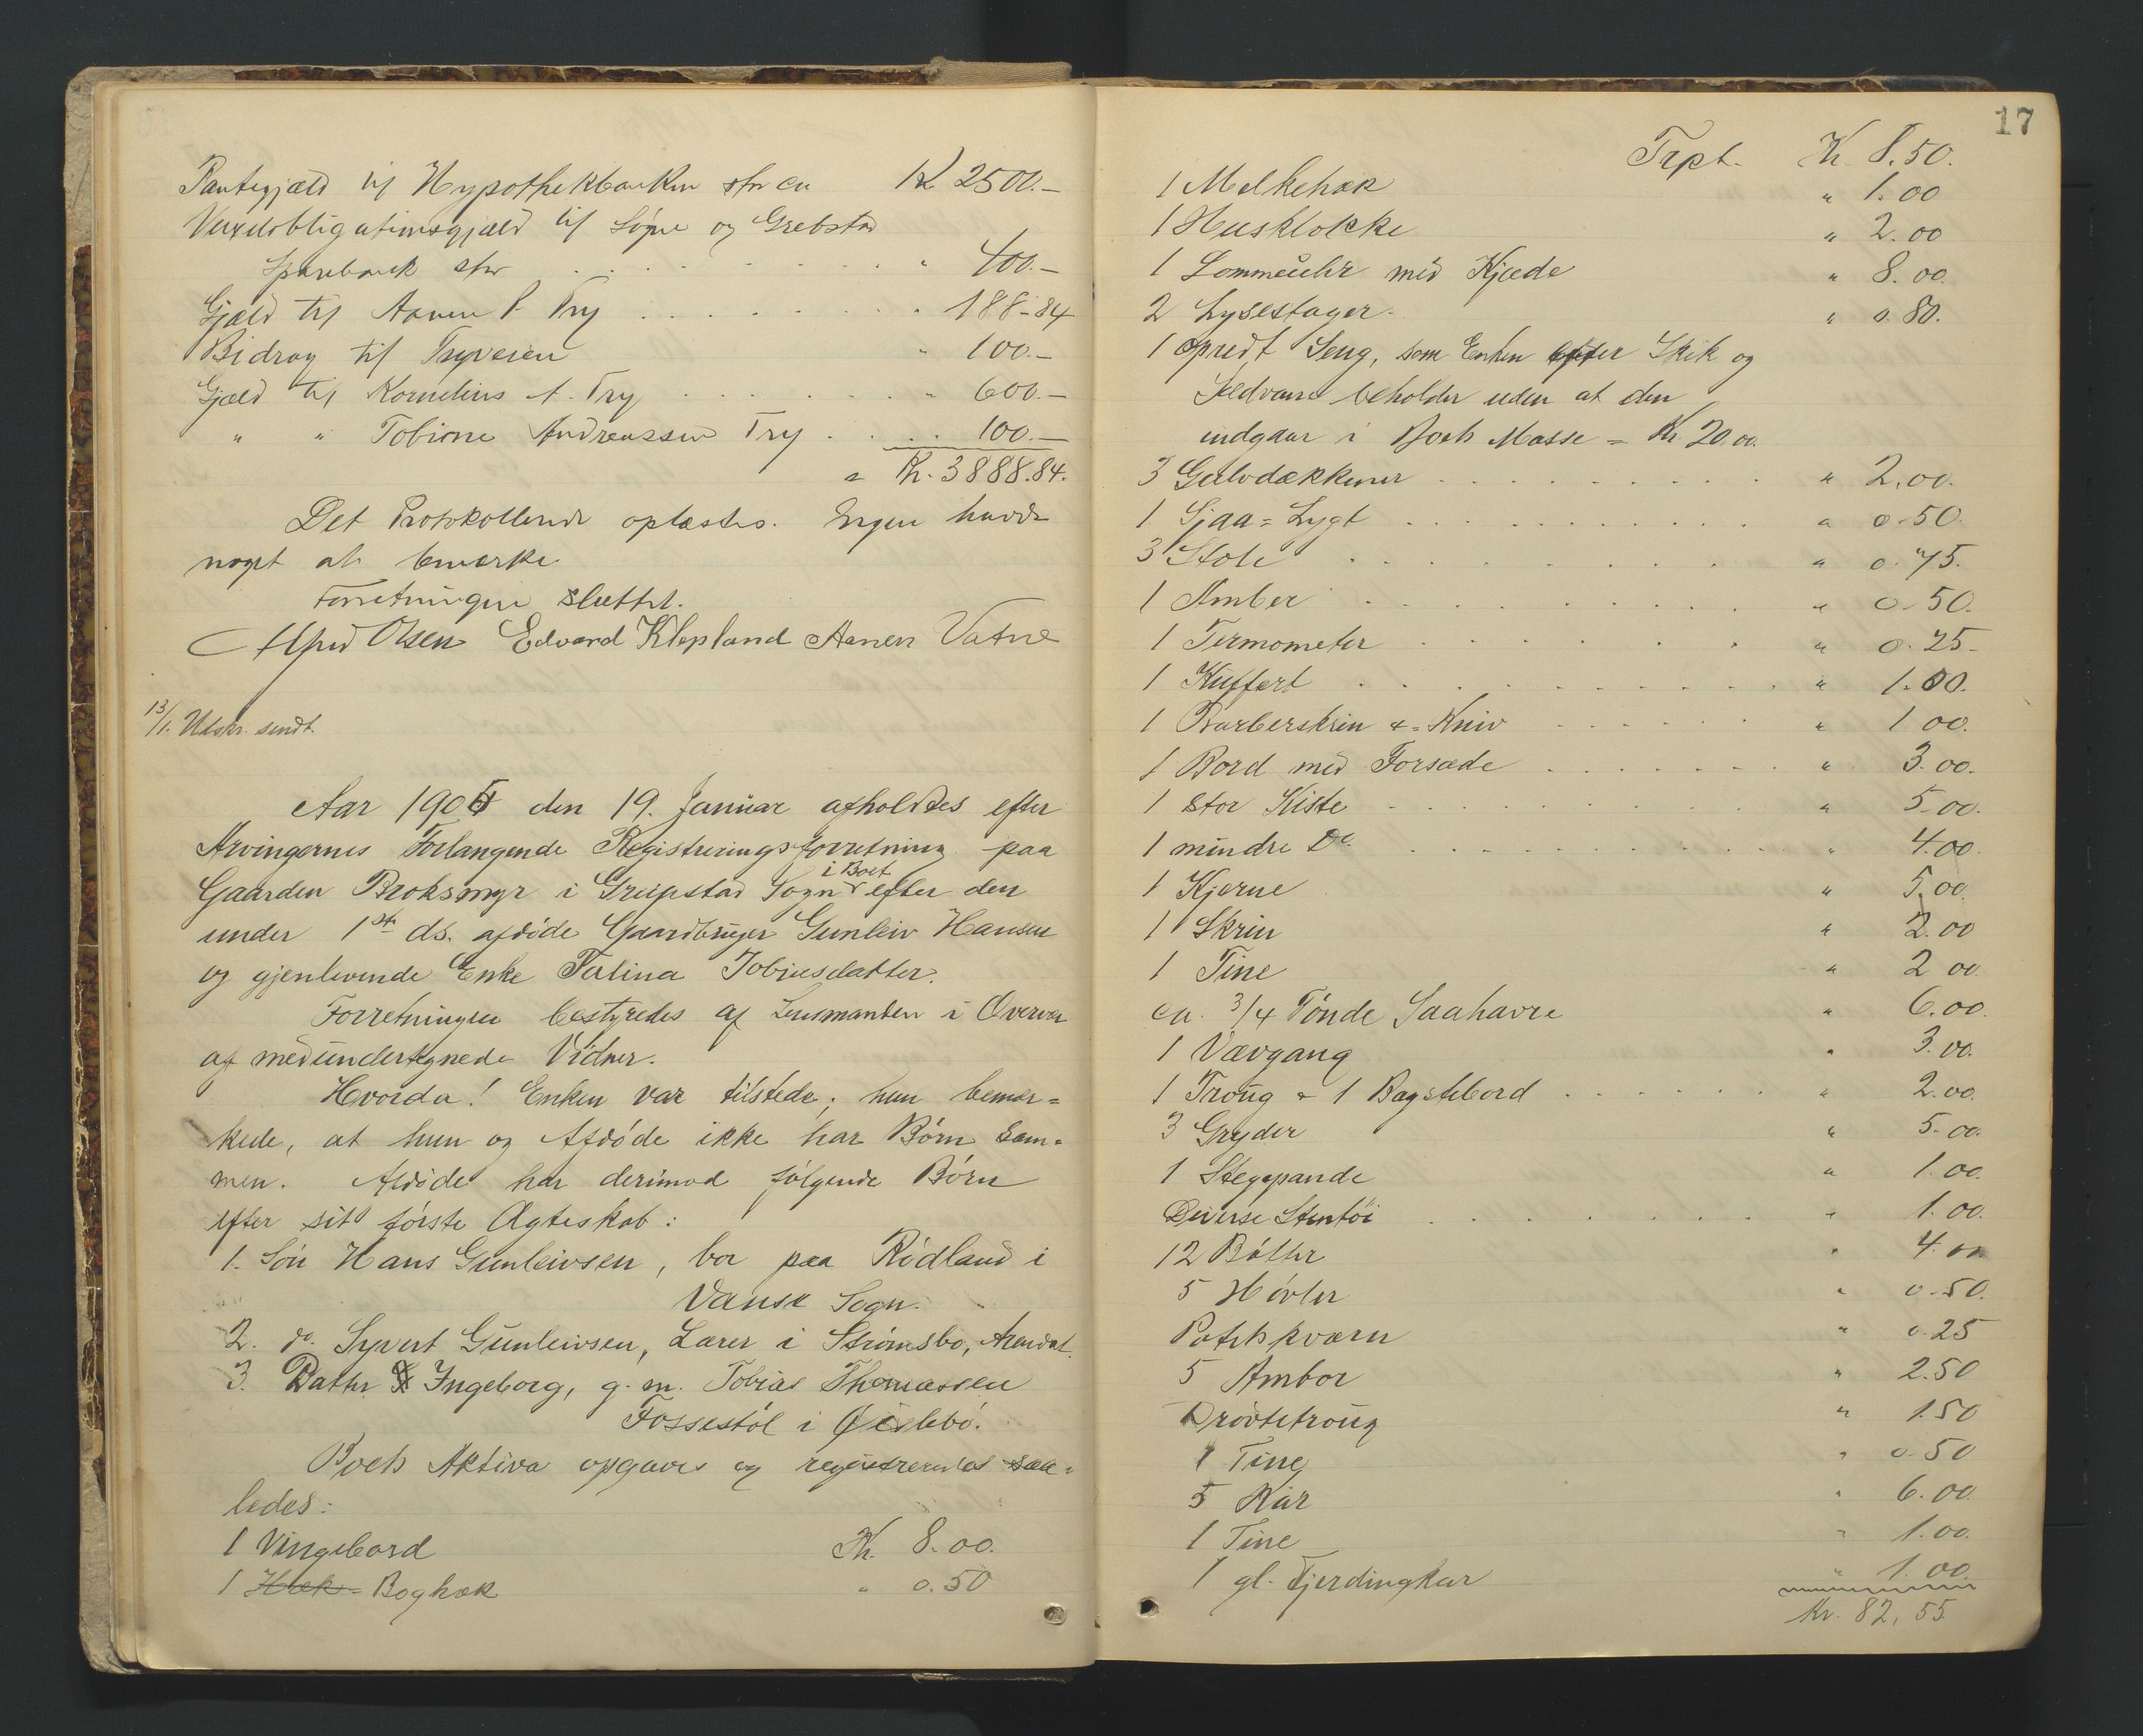 Pantegjæld til Hypothekbanken stor ca Kr 2500.-
Vexelobligationsgjæld til Søgne og Grebstad
Sparebank stor . . . . . . . . " 400.-
Gjæld til Aanen P. Try . . . . . . . . 188-84
Bidrag til Tryveien " 100.-
Gjæld til Kornelius A. Try . . . . . . . " 600.-
" " Tobine Andreassen Try . . . . 100.-
= Kr. 3888.84.
Det Protokollerede oplæstes. Ingen havde
noget at bemærke
Forretningen sluttet.
Alfred Olsen Edvard Klepland Aanen Vatne
13/1. Udskr. sendt.
Aar 1904 den 19. Januar afholdtes efter
Arvingernes Forlangende Registreringsforretning paa
Gaarden Broksmyr i Greipstad Sogn i Boet efter den
under 1ste ds. afdøde Gaardbruger Gunleiv Hansen
og gjenlevende Enke Talina Tobiasdatter.
Forretningen bestyredes af Lensmanden i Overvær
af medundertegnede Vidner.
Hvorda! Enken var tilstede; hun bemær=
kede, at hun og Afdøde ikke har Børn sam=
men. Afdøde har derimod følgende Børn
efter sit første Ægteskab:
1. Søn Hans Gunleivsen, bor paa Rødland i
Vanse Sogn.
2. do. Syvert Gunleivsen, Lærer i Strømsbo, Arendal.
3. Datter Ingeborg, g. m. Tobias Thomassen
Fossestøl i Øislebø.
Boets Aktiva opgaves og registreredes saa=
ledes:
1 Vingebord Kr. 8.00.
1 Hæk= Boghæk " 0.50
17
Trpt. Kr. 8.50.
1 Melkehæk " 1.00
1 Husklokke " 2.00
1 Lommeuhr med Kjæde " 8.00.
2 Lysestager. " 0.80.
1 opredt Seng, som Enken efter Skik og
Sedvane beholder uden at den
indgaar i Boets Masse = Kr. 20.00.
3 Gulvdækkener . . . . . . . . . " 2.00.
1 Sjaa=Lygt . . . . . . . . . " 0.50.
3 Stole . . . . . . . . . " 0.75.
1 Amber . . . . . . . . . . " 0.50.
1 Termometer . . . . . . . " 0.25-
1 Kuffert . . . . . . . . . . " 1.00.
1 Barberskrin &= Kniv . . . . . . " 1 00.
1 Bord med Forsæde . . . . . . . " 3.00.
1 stor Kiste . . . . . . . . . . " 5.00.
1 mindre Do. . . . . . . . . . . " 4.00.
1 Kjerne " 5.00.
1 Skrin " 2.00
1 Tine " 2 00.
ca. 3/4 Tønde Saahavre " 6.00.
1 Vævgang " 3.00.
1 Troug & 1 Bagstebord . . . . . . " 2.00.
3 Gryder " 5.00.
1 Stegepande " 1.00.
Diverse Stentøi . . . . . . . . " 1.00.
12 Bøtter " 4.00
5 Høvler " 0.50.
Potetkværn " 0.25
5 Ambor " 2.50
Drøvtetroug " 1.50
1 Tine " 0.50
5 Kar " 6.00.
1 Tine " 1.00.
1 gl. Fjerdingkar " 1.00.
Kr. 82,55